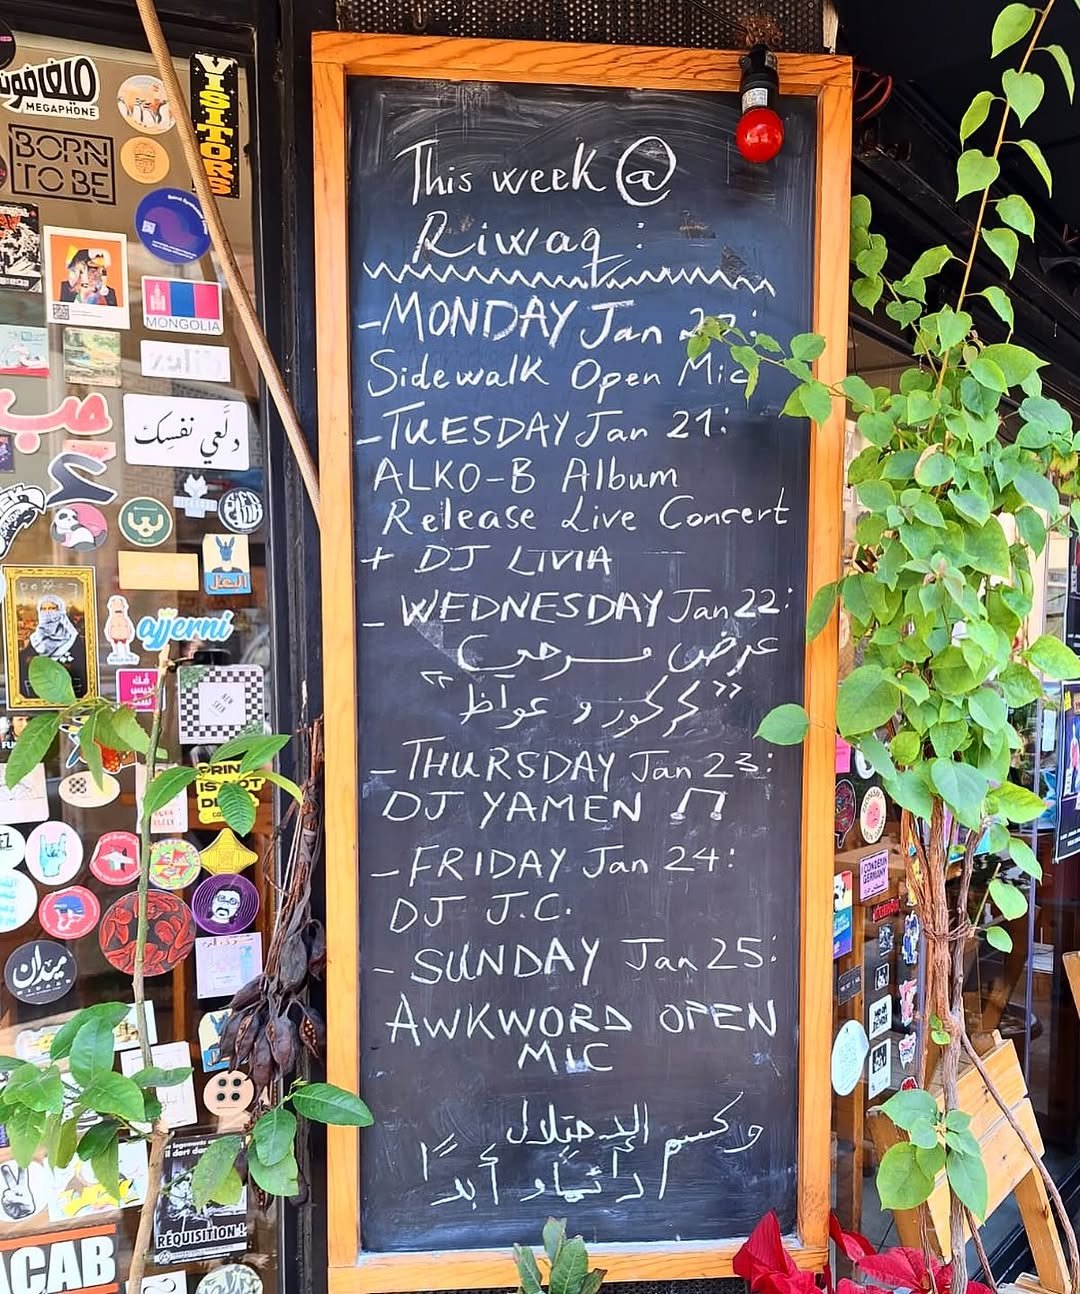 This week @
Riwaq :
-MONDAY Jan
Sidewalk Open Mic
-TUESDAY Jan 21:
ALKO-B Album
Release Live Concert
+ DJ LIVIA
- WEDNESDAY Jan 22:
عرض مسرحي
"كركوز و عواظ"
- THURSDAY Jan 23:
DJ YAMEN
- FRIDAY Jan 24:
DJ J.C.
- SUNDAY Jan 25:
AWKWORD OPEN
MIC
وكسم الاحتلال
دائماً و أبداً
MEGAPHONE
BORN
TO BE
VISITORS
MONGOLIA
دلّعي نفسِك
حب
البعل
ajjerni
NEW
SKIN
PRIN
IS NOT
DE
ميدان
REQUISITION !
ACAB
CONDEMN
GERMANY